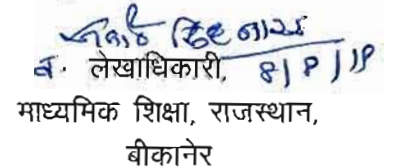 व. लेखाधिकारी, 8/8/18
माध्यमिक शिक्षा, राजस्थान,
बीकानेर